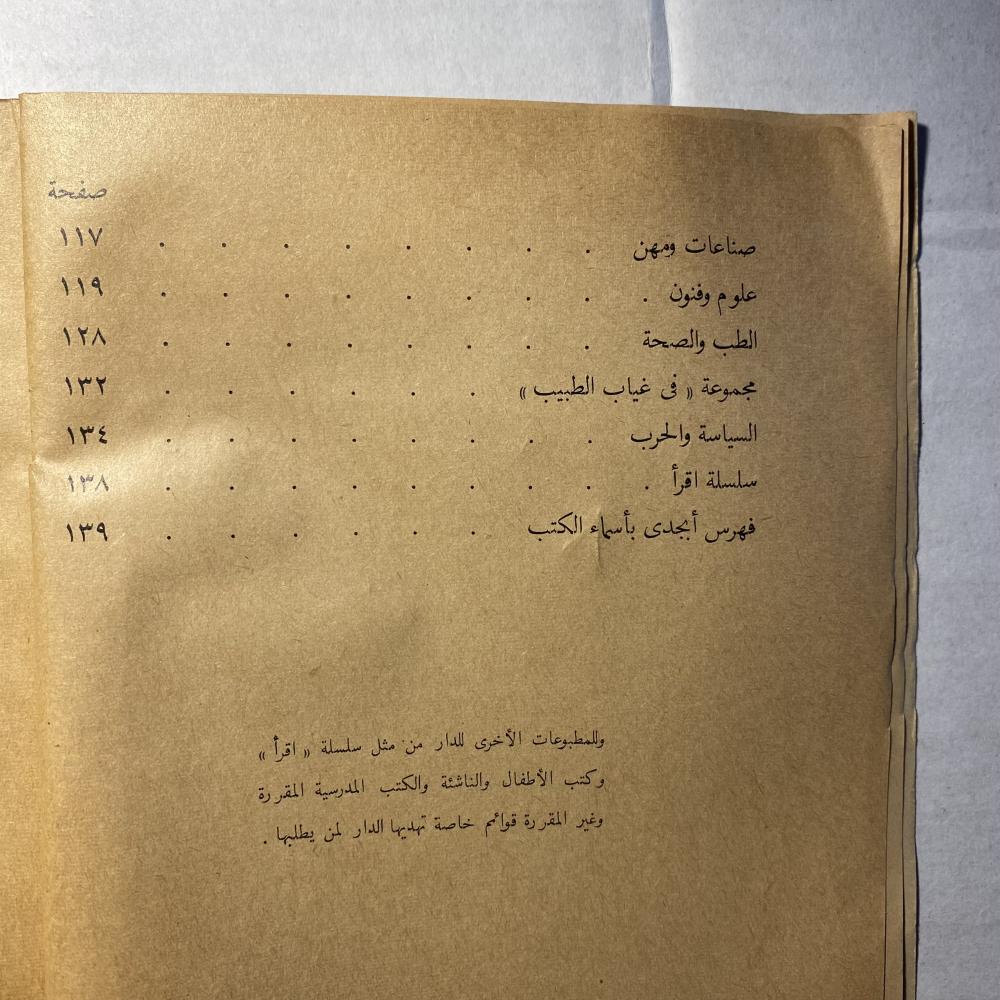 صفحة
صناعات ومهن . . . . . . . . ١١٧
علوم وفنون . . . . . . . . . ١١٩
الطب والصحة . . . . . . . . ١٢٨
مجموعة « فى غياب الطبيب » . . . . . . ١٣٢
السياسة والحرب . . . . . . . . ١٣٤
سلسلة اقرأ . . . . . . . . . ١٣٨
فهرس أبجدى بأسماء الكتب . . . . . . ١٣٩
وللمطبوعات الأخرى للدار من مثل سلسلة « اقرأ »
وكتب الأطفال والناشئة والكتب المدرسية المقررة
وغير المقررة قوائم خاصة تهديها الدار لمن يطلبها .